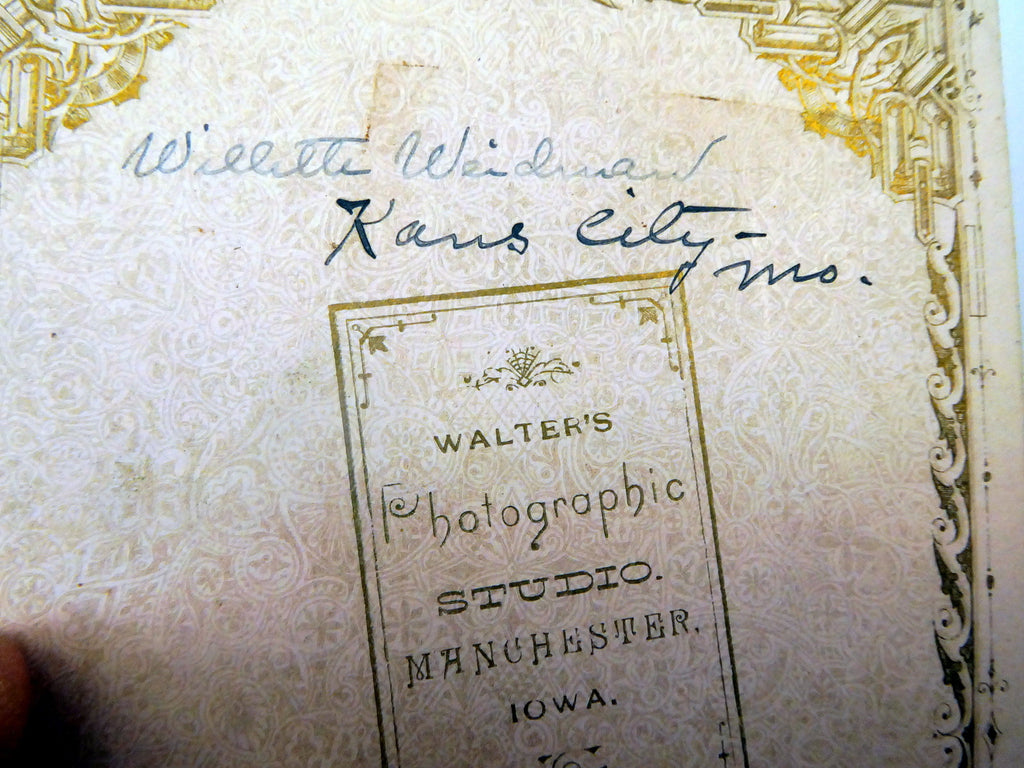 Willette Weidman
Kans City-
Mo.
WALTER'S
Photographic
STUDIO.
MANCHESTER,
IOWA.